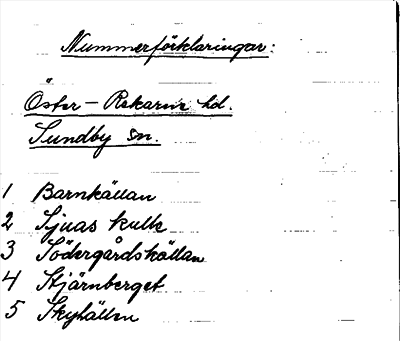 Nummerförklaringar:
Öster-Rekarne hd.
Sundby sn.
1 Barnkällan
2 Sjuas kulle
3 Södergårdskällan
4 Stjärnberget
5 Skyhällen